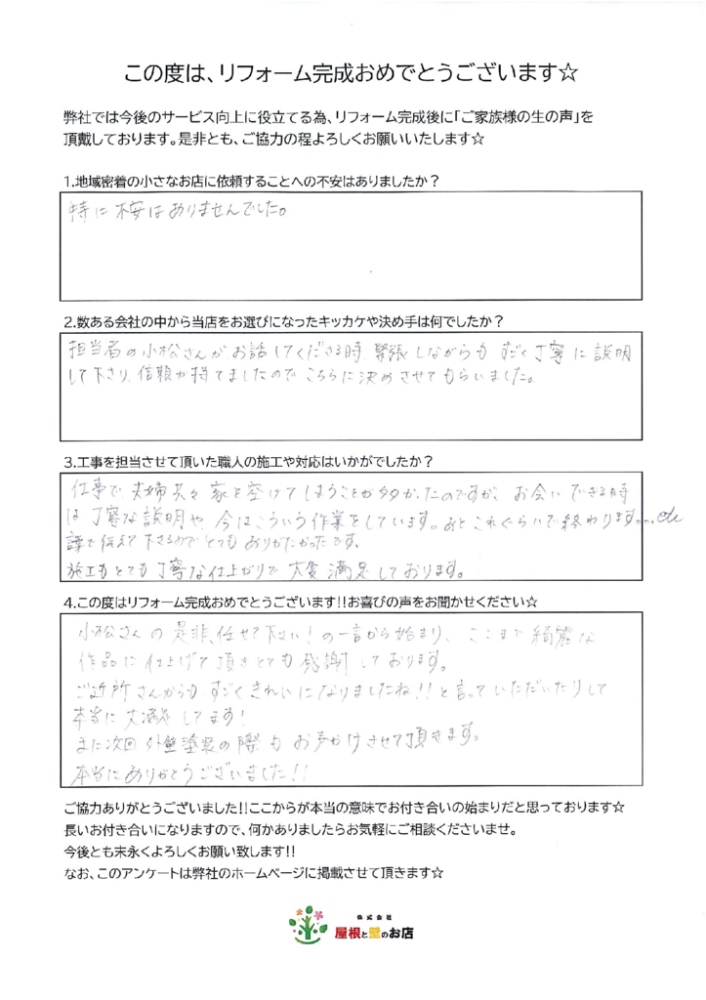 この度は、リフォーム完成おめでとうございます☆
弊社では今後のサービス向上に役立てる為、リフォーム完成後に「ご家族様の生の声」を
頂戴しております。是非とも、ご協力の程よろしくお願いいたします☆
1.地域密着の小さなお店に依頼することへの不安はありましたか？
特に不安はありませんでした。
2.数ある会社の中から当店をお選びになったキッカケや決め手は何でしたか？
担当者の小松さんがお話してくださる時、緊張しながらもすごく丁寧に説明
して下さり、信頼が持てましたのでこちらに決めさせてもらいました。
3.工事を担当させて頂いた職人の施工や対応はいかがでしたか？
仕事で夫婦共々家を空けてしまうことが多かったのですが、お会いできる時
は丁寧な説明や、今はこういう作業をしています。あとこれぐらいで終わります...etc
で伝えて下さるのでとてもありがたかったです。
施工もとても丁寧な仕上がりで大変満足しております。
4.この度はリフォーム完成おめでとうございます!!お喜びの声をお聞かせください☆
小松さんの是非、任せて下さい!の一言から始まり、ここまで綺麗な
作品に仕上げて頂きとても感謝しております。
ご近所さんからもすごくきれいになりましたね!!と言っていただいたりして
本当に大満足してます!
また次回外壁塗装の際もお声かけさせて頂きます。
本当にありがとうございました!!
ご協力ありがとうございました!!ここからが本当の意味でお付き合いの始まりだと思っております☆
長いお付き合いになりますので、何かありましたらお気軽にご相談くださいませ。
今後とも末永くよろしくお願い致します!!
なお、このアンケートは弊社のホームページに掲載させて頂きます☆
株式会社
屋根と壁のお店